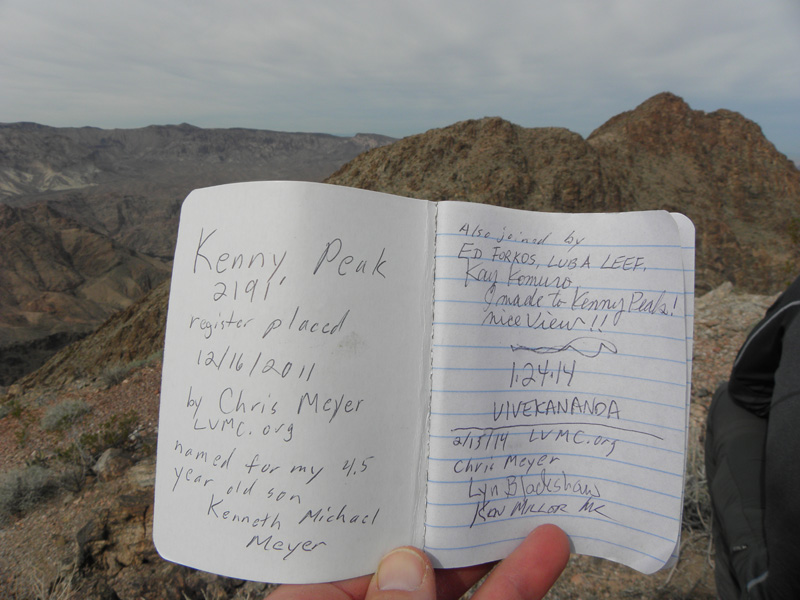 Kenny Peak
2191'
register placed
12/16/2011
by Chris Meyer
LVMC.org
named for my 4.5
year old son
Kenneth Michael
Meyer
Also joined by
ED FORKOS, LUBA LEEF,
Kay Komuro
I made to Kenny Peak!
nice View!!
1.24.14
VIVEKANANDA
2/13/14 LVMC.org
Chris Meyer
Lyn Blackshaw
KEN MILLOR MK